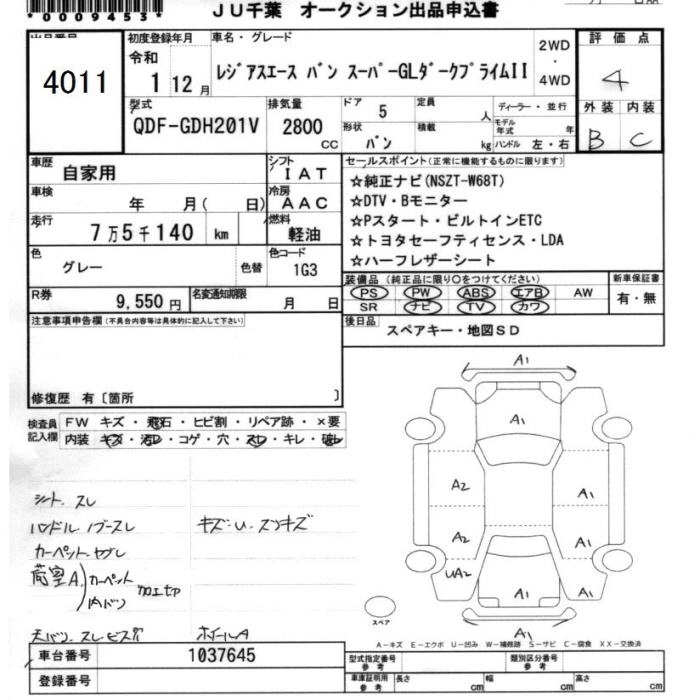 *0009453*
JU千葉 オークション出品申込書
出品番号
4011
初度登録年月
令和
1 12月
車名・グレード
レジアスエース バン スーパーGLダークプライムII
2WD
・
4WD
評価点
4
外装 内装
B C
型式
QDF-GDH201V
排気量
2800
cc
ドア
5
定員
人
形状
バン
積載
kg
ディーラー・並行
モデル年式 年
ハンドル 左・右
車歴
自家用
シフト
IAT
車検
年 月( 日)
冷房
AAC
走行
7万5千140 km
燃料
軽油
色
グレー
色替
色コード
1G3
R券
9,550円
名変通知期限
月 日
セールスポイント(正常に機能するものに限ります)
☆純正ナビ(NSZT-W68T)
☆DTV・Bモニター
☆Pスタート・ビルトインETC
☆トヨタセーフティセンス・LDA
☆ハーフレザーシート
装備品(純正品に限り○をつけてください)
PS PW ABS エアB AW
SR ナビ TV カワ
新車保証書
有・無
後日品
スペアキー・地図SD
注意事項申告欄(不具合内容等は具体的に記入して下さい)
修復歴 有〔箇所 〕
検査員記入欄
FW キズ・飛石・ヒビ割・リペア跡・×要
内装 キズ・汚レ・コゲ・穴・スレ・キレ・破レ
シート、スレ
ハンドル、ノブースレ
キズ・U・スンキズ
荷室A
カーペット
内バン
ホイールA
A1
A1
A2
A1
A2
A1
UA2
A1
A1
スペア
A-キズ E-エクボ U-凹み W-補修跡 S-サビ C-腐食 XX-交換済
車台番号
1037645
登録番号
型式指定番号 参考
類別区分番号 参考
車庫証明用 参考
長さ cm
幅 cm
高さ cm